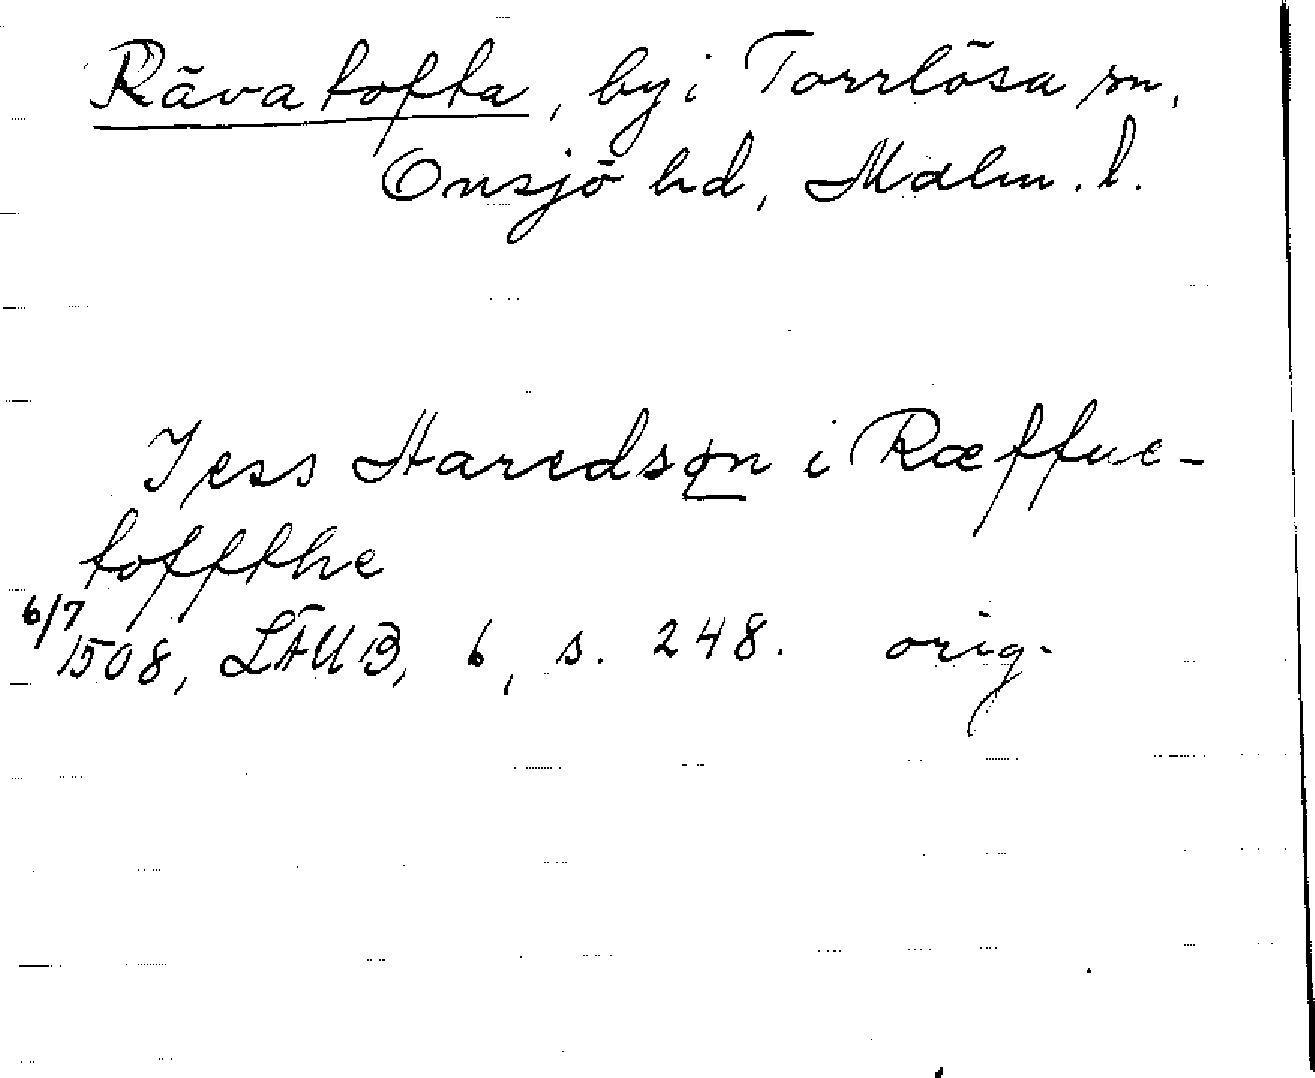 Rävatofta, by i Torrlösa sn,
Onsjö hd, Malm. l.
Jess Haredsøn i Ræffue-
toffthe
6/7 1508, LÄUB, 6, s. 248. orig.